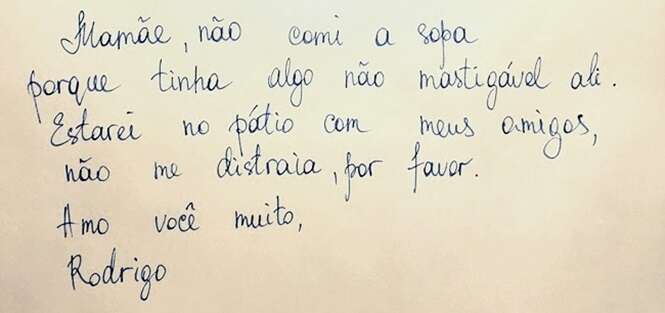 Mamãe, não comi a sopa
porque tinha algo não mastigável ali.
Estarei no pátio com meus amigos,
não me distraia, por favor.
Amo você muito,
Rodrigo